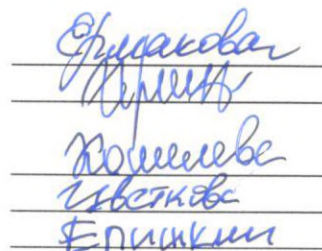 Ермакова
Кошелева
Цветкова
Епишкин